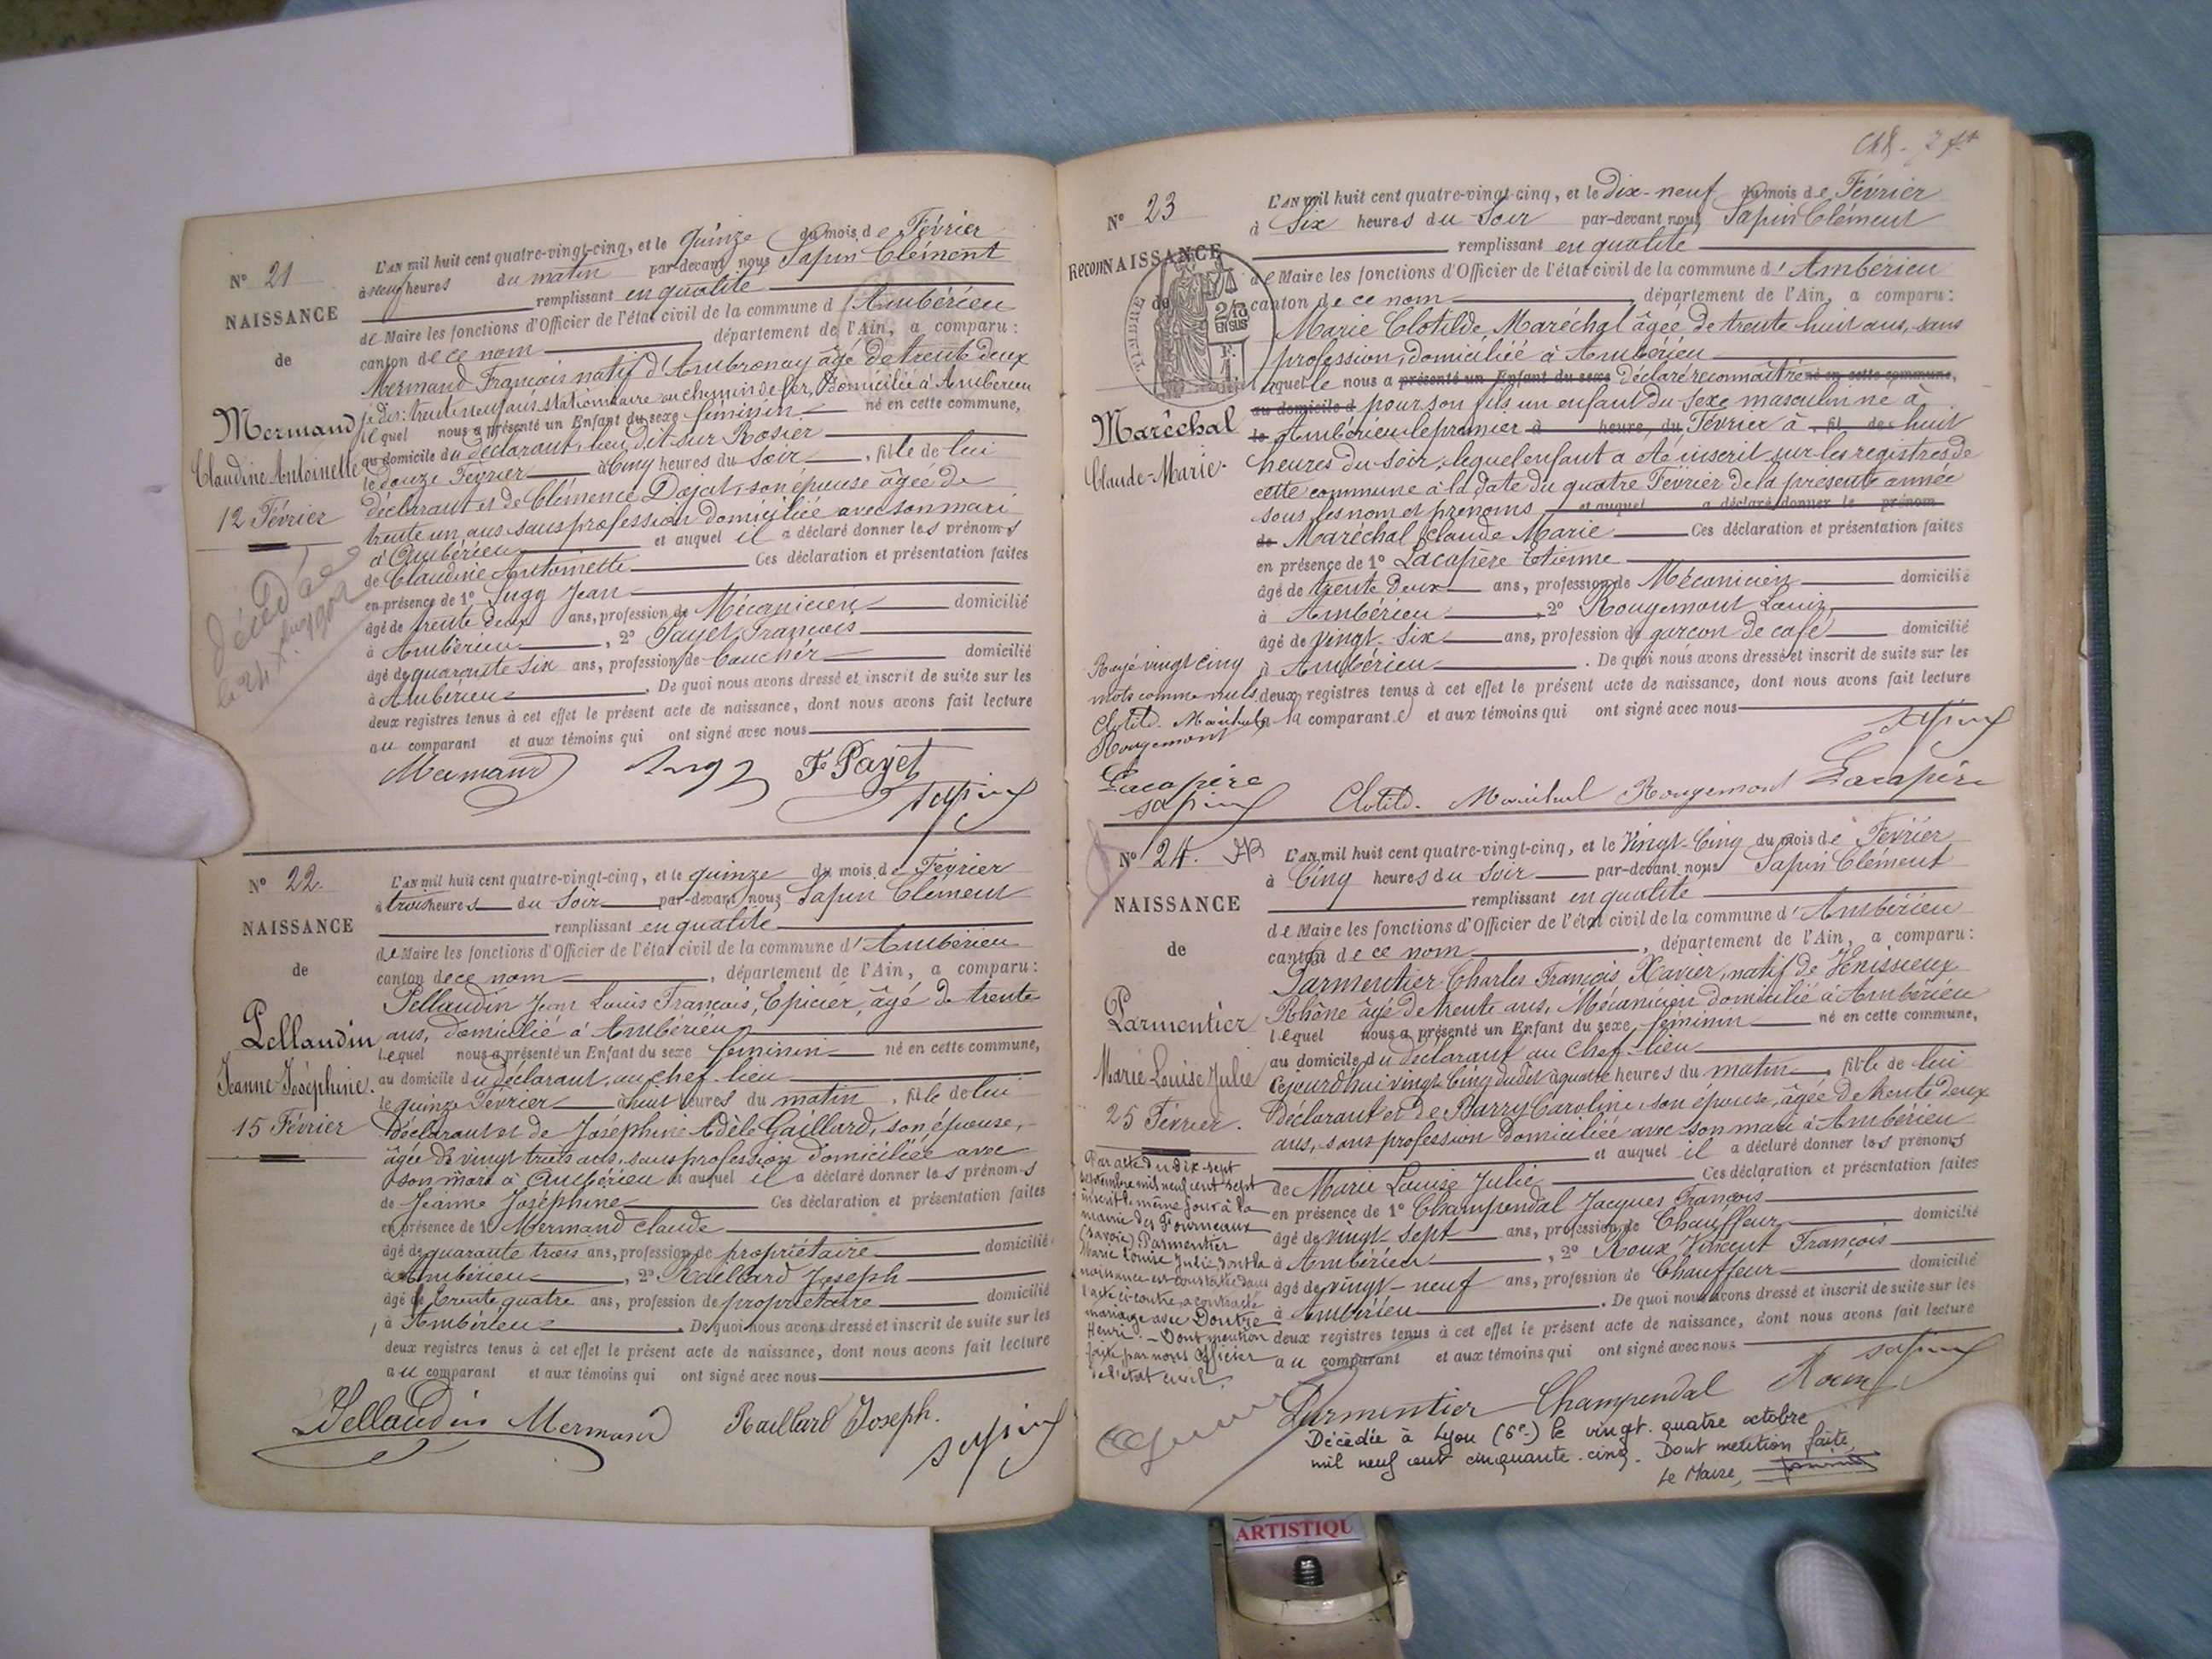 N° 21
NAISSANCE
de
Mermand
Claudine Antoinette
12 Février
décédée
L'AN mil huit cent quatre-vingt-cinq, et le quinze du mois de Février
à neuf heures du matin par-devant nous Sapin Clément
remplissant en qualité
de Maire les fonctions d'Officier de l'état civil de la commune d'Ambérieu
canton de ce nom département de l'Ain, a comparu :
Mermand François natif d'Ambronay âgé de trente deux
stationnaire au chemin de fer, Domicilié à Ambérieu
lequel nous a présenté un Enfant du sexe féminin né en cette commune,
au domicile du déclarant, lieu dit sur Rosier
le douze Février à Cinq heures du Soir, fille de lui
déclarant et de Clémence Dojat, son épouse âgée de
trente un ans sans profession domiciliée avec son mari
à Ambérieu et auquel il a déclaré donner les prénoms
de Claudine Antoinette Ces déclaration et présentation faites
en présence de 1° Sugg Jean
âgé de trente deux ans, profession de Mécanicien domicilié
à Ambérieu, 2° Payet François
âgé de quarante six ans, profession de boucher domicilié
à Ambérieu. De quoi nous avons dressé et inscrit de suite sur les
deux registres tenus à cet effet le présent acte de naissance, dont nous avons fait lecture
au comparant et aux témoins qui ont signé avec nous
Mermand Sugg F. Payet
Sapin
N° 22.
NAISSANCE
de
Pellaudin
Jeanne-Joséphine.
15 Février
L'AN mil huit cent quatre-vingt-cinq, et le quinze du mois de Février
à trois heures du Soir par-devant nous Sapin Clément
remplissant en qualité
de Maire les fonctions d'Officier de l'état civil de la commune d'Ambérieu
canton de ce nom, département de l'Ain, a comparu :
Pellaudin Jean Louis François, Epicier, âgé de trente
ans, domicilié à Ambérieu
lequel nous a présenté un Enfant du sexe féminin né en cette commune,
au domicile du déclarant, au chef-lieu
le quinze Février à huit heures du matin, fille de lui
déclarant et de Joséphine Adèle Gaillard, son épouse,
âgée de vingt trois ans, sans profession domiciliée avec
son mari à Ambérieu et auquel il a déclaré donner les prénoms
de Jeanne Joséphine Ces déclaration et présentation faites
en présence de 1° Mermand Claude
âgé de quarante trois ans, profession de propriétaire domicilié
à Ambérieu, 2° Raillard Joseph
âgé de trente quatre ans, profession de propriétaire domicilié
à Ambérieu. De quoi nous avons dressé et inscrit de suite sur les
deux registres tenus à cet effet le présent acte de naissance, dont nous avons fait lecture
au comparant et aux témoins qui ont signé avec nous
Pellaudin Mermand Raillard Joseph.
Sapin
N° 23
ReconNAISSANCE
de
TIMBRE
2/10
EN SUS
Maréchal
Claude-Marie.
L'AN mil huit cent quatre-vingt-cinq, et le dix-neuf du mois de Février
à Six heures du Soir par-devant nous Sapin Clément
remplissant en qualité
de Maire les fonctions d'Officier de l'état civil de la commune d'Ambérieu
canton de ce nom, département de l'Ain, a comparu :
Marie Clotilde Maréchal âgée de trente huit ans, sans
profession, domiciliée à Ambérieu
laquelle nous a présenté un Enfant du sexe Déclaré reconnaître né en cette commune,
au domicile d pour son fils un enfant du sexe masculin né à
le Ambérieu le premier à heure, du Février à fil de huit
heures du soir, lequel enfant a été inscrit sur les registres de
cette commune à la date du quatre Février de la présente année
sous les nom et prénoms et auquel a déclaré donner le prénom
de Maréchal Claude Marie Ces déclaration et présentation faites
en présence de 1° Lacapère Etienne
âgé de trente deux ans, profession de Mécanicien domicilié
à Ambérieu, 2° Rougemont Louis
âgé de vingt-six ans, profession de garçon de café domicilié
à Ambérieu. De quoi nous avons dressé et inscrit de suite sur les
deux registres tenus à cet effet le présent acte de naissance, dont nous avons fait lecture
à la comparante et aux témoins qui ont signé avec nous
Rayé vingt cinq
mots comme nuls
Clotild. Maréchal
Rougemont
Lacapère
Sapin
Sapin
Clotild. Maréchal Rougemont Lacapère
N° 24.
NAISSANCE
de
Parmentier
Marie Louise Julie
25 Février.
L'AN mil huit cent quatre-vingt-cinq, et le Vingt-Cinq du mois de Février
à Cinq heures du Soir par-devant nous Sapin Clément
remplissant en qualité
de Maire les fonctions d'Officier de l'état civil de la commune d'Ambérieu
canton de ce nom, département de l'Ain, a comparu :
Parmentier Charles François Xavier, natif de Vénissieux
Rhône âgé de trente ans, Mécanicien domicilié à Ambérieu
lequel nous a présenté un Enfant du sexe féminin né en cette commune,
au domicile du déclarant au Chef-lieu
Cejourd'hui vingt-cinq dudit à quatre heures du matin, fille de lui
Déclarant et de Barry Caroline, son épouse, âgée de trente deux
ans, sans profession domiciliée avec son mari à Ambérieu
et auquel il a déclaré donner les prénoms
de Marie Louise Julie Ces déclaration et présentation faites
en présence de 1° Champendal Jacques François
âgé de vingt-sept ans, profession de Chauffeur domicilié
à Ambérieu, 2° Roux Vincent François
âgé de vingt-neuf ans, profession de Chauffeur domicilié
à Ambérieu. De quoi nous avons dressé et inscrit de suite sur les
deux registres tenus à cet effet le présent acte de naissance, dont nous avons fait lecture
au comparant et aux témoins qui ont signé avec nous
Par acte du dix-sept
septembre mil neuf cent sept
inscrit le même jour à la
mairie des Fourneaux
(Savoie) Parmentier
Marie Louise Julie dont la
naissance est constatée dans
l'acte ci-contre, a contracté
mariage avec Doutre
Henri. - Dont mention
faite par nous Officier
de l'état civil.
Sapin
Parmentier Champendal Roux
Décédée à Lyon (6e) le vingt-quatre octobre
mil neuf cent cinquante-cinq. Dont mention faite,
Le Maire,
ARTISTIQU